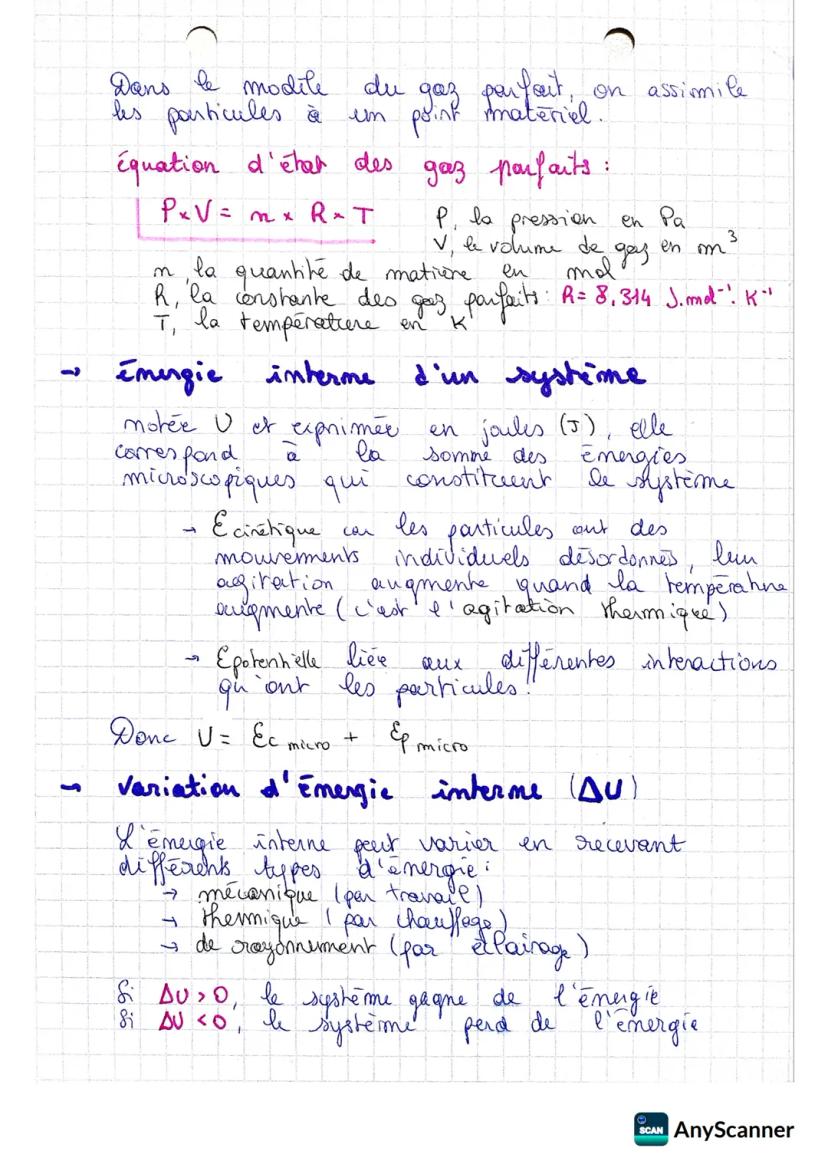 Dans le modèle du gaz parfait, on assimile
les particules à un point matériel.
équation d'état des gaz parfaits :
P x V = n x R x T
P, la pression en Pa
V, le volume de gaz en m³
n, la quantité de matière en mol
R, la constante des gaz parfaits: R = 8,314 J.mol⁻¹. K⁻¹
T, la température en K
→ énergie interne d'un système
notée U et exprimée en joules (J), elle
correspond à la somme des énergies
microscopiques qui constituent le système
→ Ecinétique car les particules ont des
mouvements individuels désordonnés, leur
agitation augmente quand la température
augmente (c'est l'agitation thermique)
→ Epotentielle liée aux différentes interactions
qu'ont les particules.
Donc U = Ec micro + Ep micro
→ Variation d'énergie interne (ΔU)
L'énergie interne peut varier en recevant
différents types d'énergie :
→ mécanique (par travail)
→ thermique (par chauffage)
→ de rayonnement (par éclairage)
Si ΔU > 0, le système gagne de l'énergie
Si ΔU < 0, le système perd de l'énergie
SCAN AnyScanner